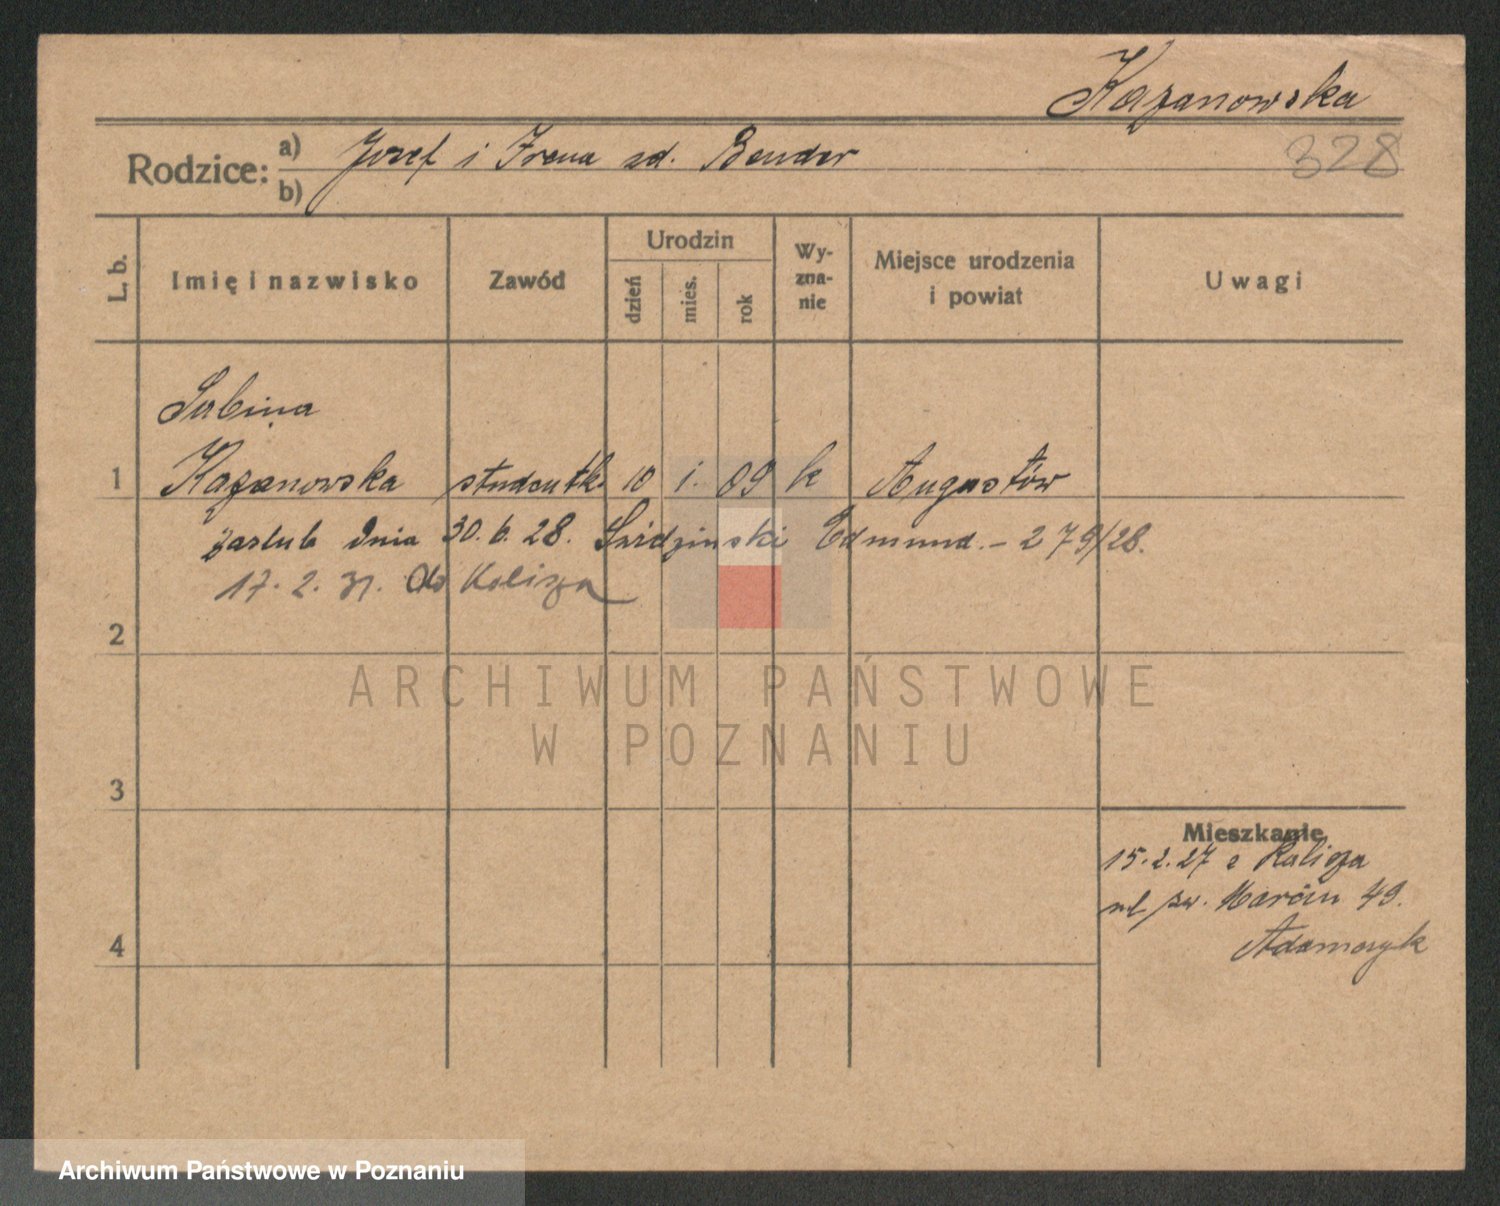 Kazanowska
328
Rodzice: a) Jozef i Irena zd. Bender
b)
L. b.
Imię i nazwisko
Zawód
Urodzin
dzień
mies.
rok
Wy-
zna-
nie
Miejsce urodzenia
i powiat
Uwagi
Sabina
1 Kazanowska studentk. 10 1. 09 k Augustów
zaślub dnia 30. 6. 28. Edmund. - 279/28.
17. 2. 31. do Kalisza
2
3
4
Mieszkanie
15. 2. 27 z Kalisza
ul św. Marcin 49.
Adamczyk
ARCHIWUM PAŃSTWOWE
W POZNANIU
Archiwum Państwowe w Poznaniu